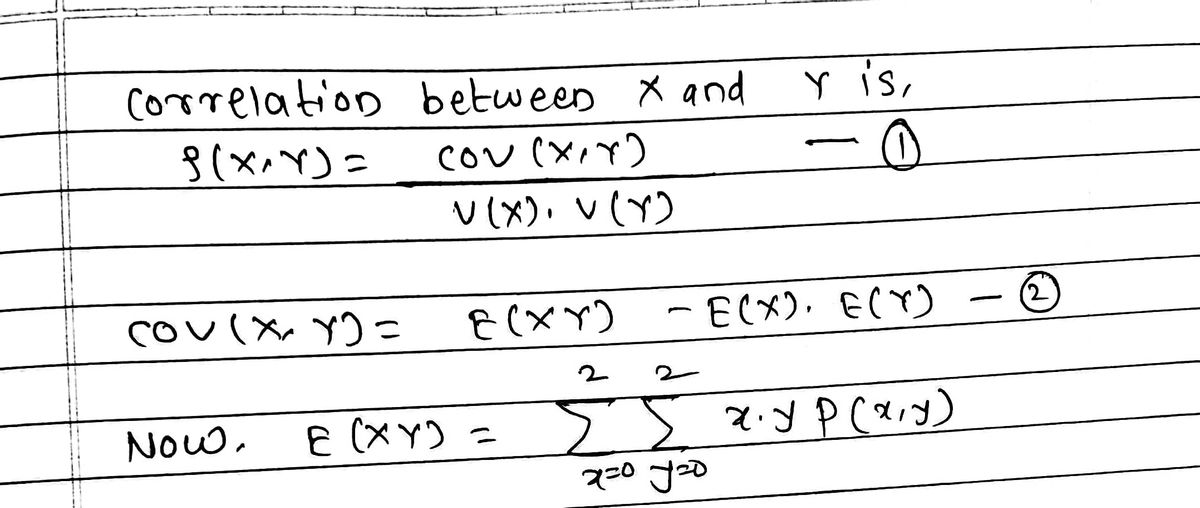 Correlation between X and Y is,
ρ(X,Y) = COV (X,Y) — ①
V(X). V(Y)
COV(X, Y) = E(XY) - E(X). E(Y) — ②
2 2
Now, E(XY) = Σ Σ x.y P(x,y)
x=0 y=0